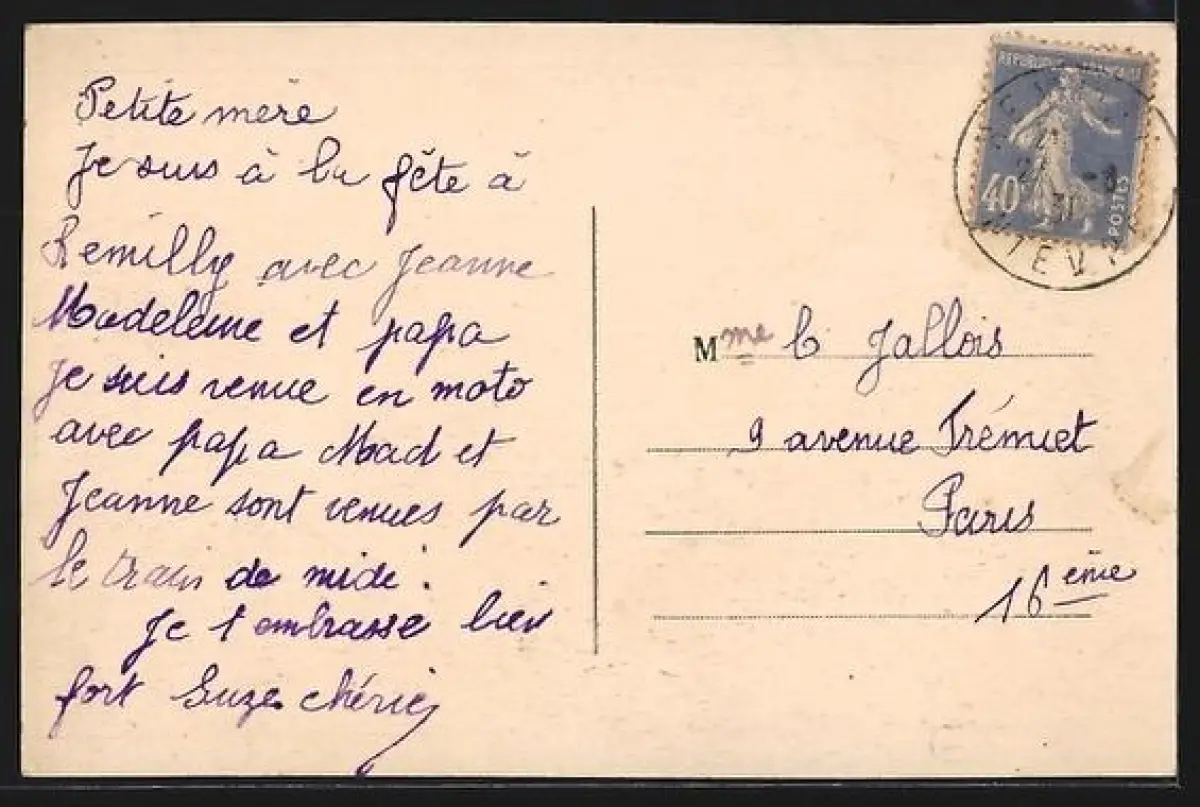 Petite mère
Je suis à la fête à
Remilly avec Jeanne
Madeleine et papa
Je suis venue en moto
avec papa Mad et
Jeanne sont venues par
le train de midi.
Je t'embrasse bien
fort Suze chérie
REPUBLIQUE FRANÇAISE
40c
POSTES
Mme Jallois
9 avenue Frémiet
Paris
16ème